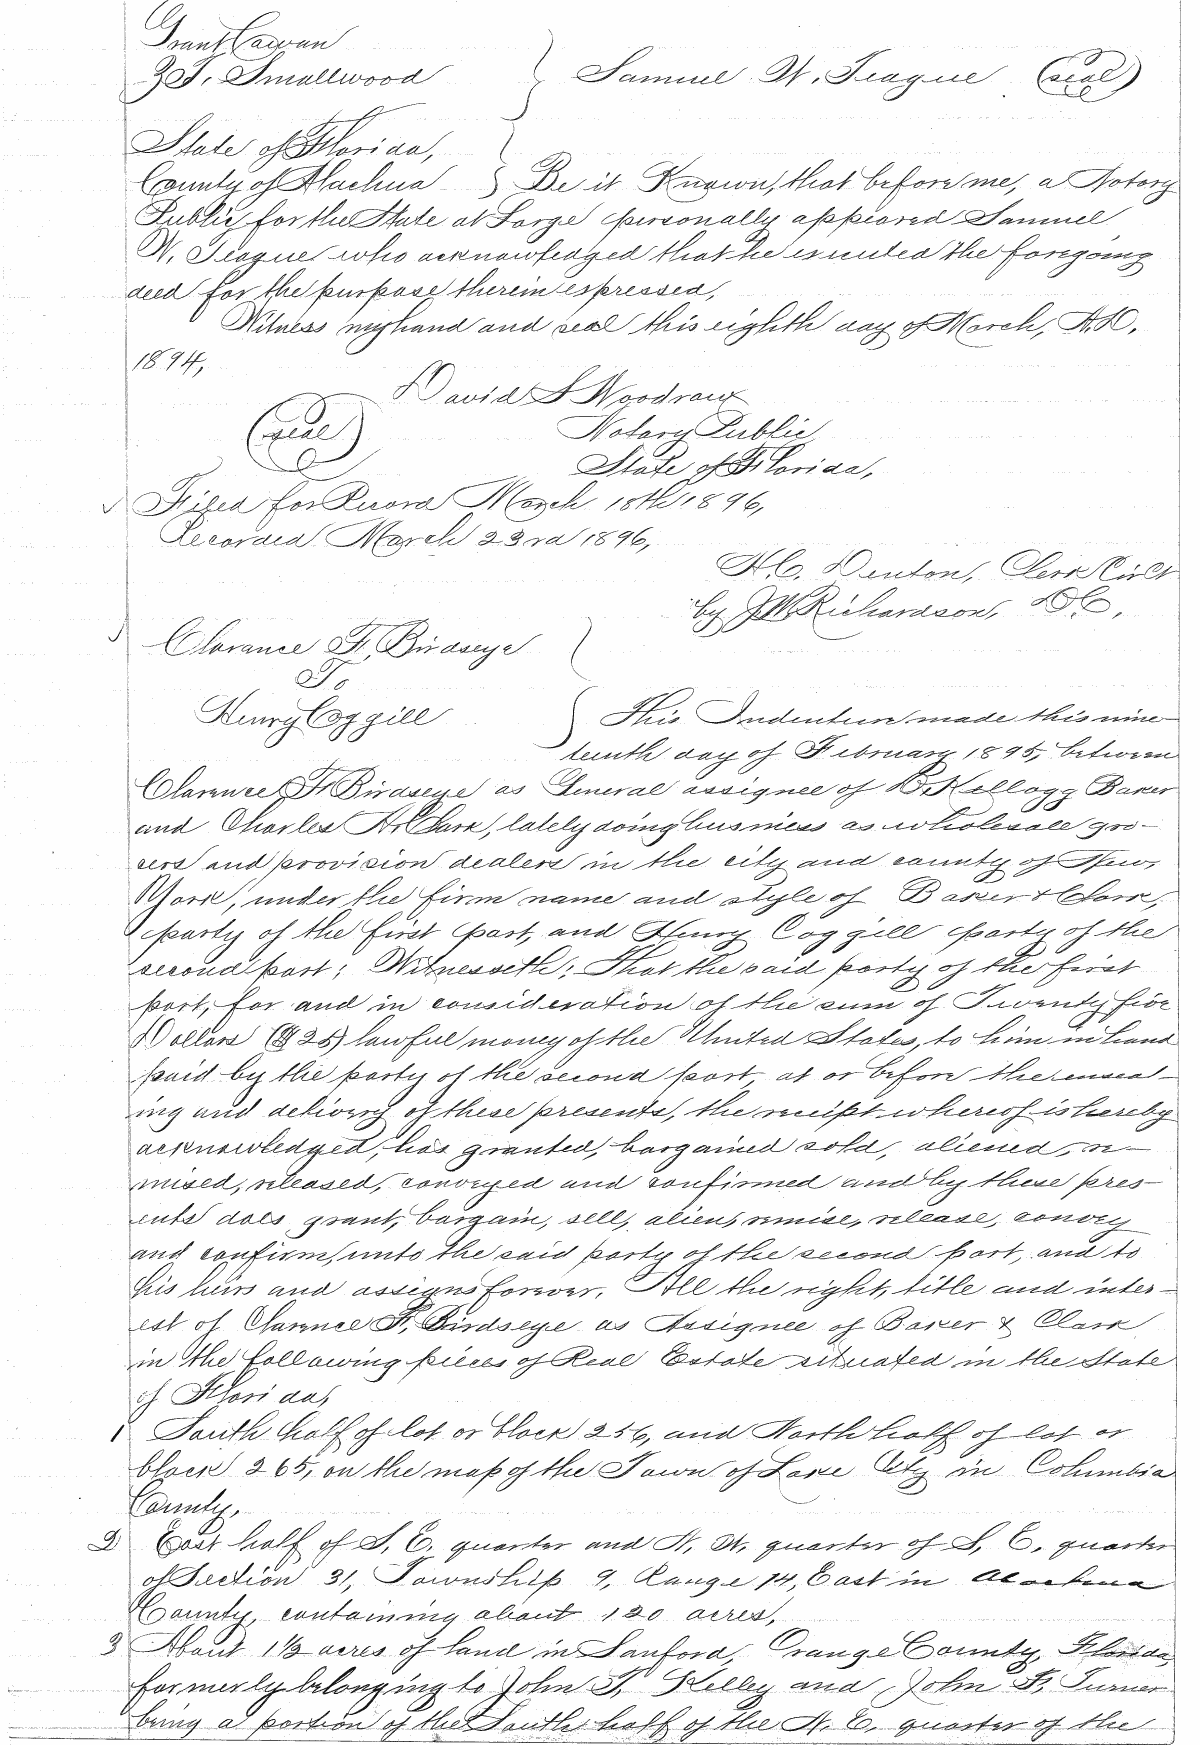 Grant Cowan
Z T. Smallwood } Samuel W. Teague (seal)
State of Florida,
County of Alachua } Be it Known, that before me, a Notary
Public for the State at Large personally appeared Samuel
W. Teague who acknowledged that he executed the foregoing
deed for the purpose therein expressed,
Witness my hand and seal this eighth day of March, A.D.
1894,
David S
(seal) Notary Public
State of Florida,
Filed for Record March 18th 1896,
Recorded March 23rd 1896,
H.C. Denton, Clerk
by J.W. Richardson, D C,
Clarance F. Birdseye
To
Henry Coggill } This Indenture made this nine-
teenth day of February 1895, between
Clarence F. Birdseye as General assignee of Kellogg Baker
and Charles H. Clark, lately doing business as wholesale gro-
cers and provision dealers in the city and county of New
York, under the firm name and style of Baker & Clark,
party of the first part, and Henry Coggill party of the
second part; Witnesseth; That the said party of the first
part, for and in consideration of the sum of Twenty five
Dollars ($25) lawful money of the United States, to him in hand
paid by the party of the second part, at or before the enseal-
ing and delivery of these presents, the receipt whereof is hereby
acknowledged, has granted, bargained sold, aliened, re-
mised, released, conveyed and confirmed and by these pres-
ents does grant, bargain, sell, alien, remise, release, convey
and confirm, unto the said party of the second part, and to
his heirs and assigns forever, All the right, title and inter-
est of Clarence F. Birdseye as Assignee of Baker & Clark
in the following pieces of Real Estate situated in the State
of Florida,
1 South half of lot or block 256, and North half of lot or
block 265, on the map of the Town of Lake City in Columbia
County,
2 East half of S. E. quarter and N. W. quarter of S. E. quarter
of Section 31, Township 9, Range 14, East in Alachua
County, containing about 120 acres,
3 About 1½ acres of land in Sanford, Orange County, Florida
formerly belonging to John T. Kelley and John F. Turner
being a portion of the South half of the N. E. quarter of the